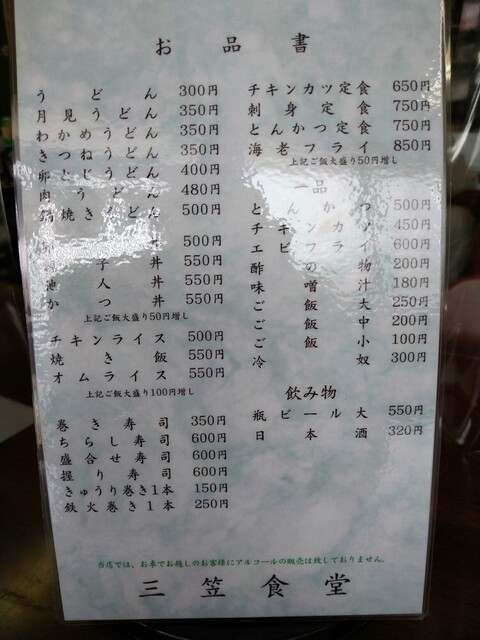 お品書
うどん 300円
月見うどん 350円
わかめうどん 350円
きつねうどん 350円
卵とじうどん 400円
肉うどん 480円
鍋焼きうどん 500円
丼 500円
子丼 550円
人丼 550円
かつ丼 550円
上記ご飯大盛り50円増し
チキンライス 500円
焼き飯 550円
オムライス 550円
上記ご飯大盛り100円増し
巻き寿司 350円
ちらし寿司 600円
盛合せ寿司 600円
握り寿司 600円
きゅうり巻き1本 150円
鉄火巻き1本 250円
チキンカツ定食 650円
刺身定食 750円
とんかつ定食 750円
海老フライ 850円
上記ご飯大盛り50円増し
一品
とんかつ 500円
チキンカツ 450円
エビフライ 600円
酢の物 200円
味噌汁 180円
ご飯大 250円
ご飯中 200円
ご飯小 100円
冷奴 300円
飲み物
瓶ビール大 550円
日本酒 320円
当店では、お車でお越しのお客様にアルコールの販売は致しておりません。
三笠食堂